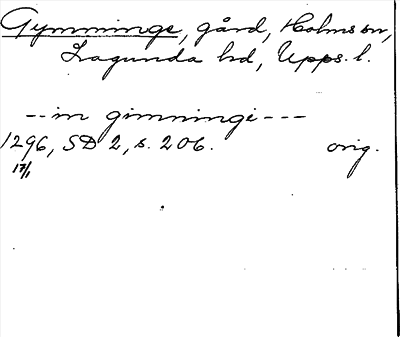 Gymminge, gård, Holms sn,
Lagunda hd, Upps. l.
-- in gimmingi ---
1296, SD 2, s. 206. orig.
17/1